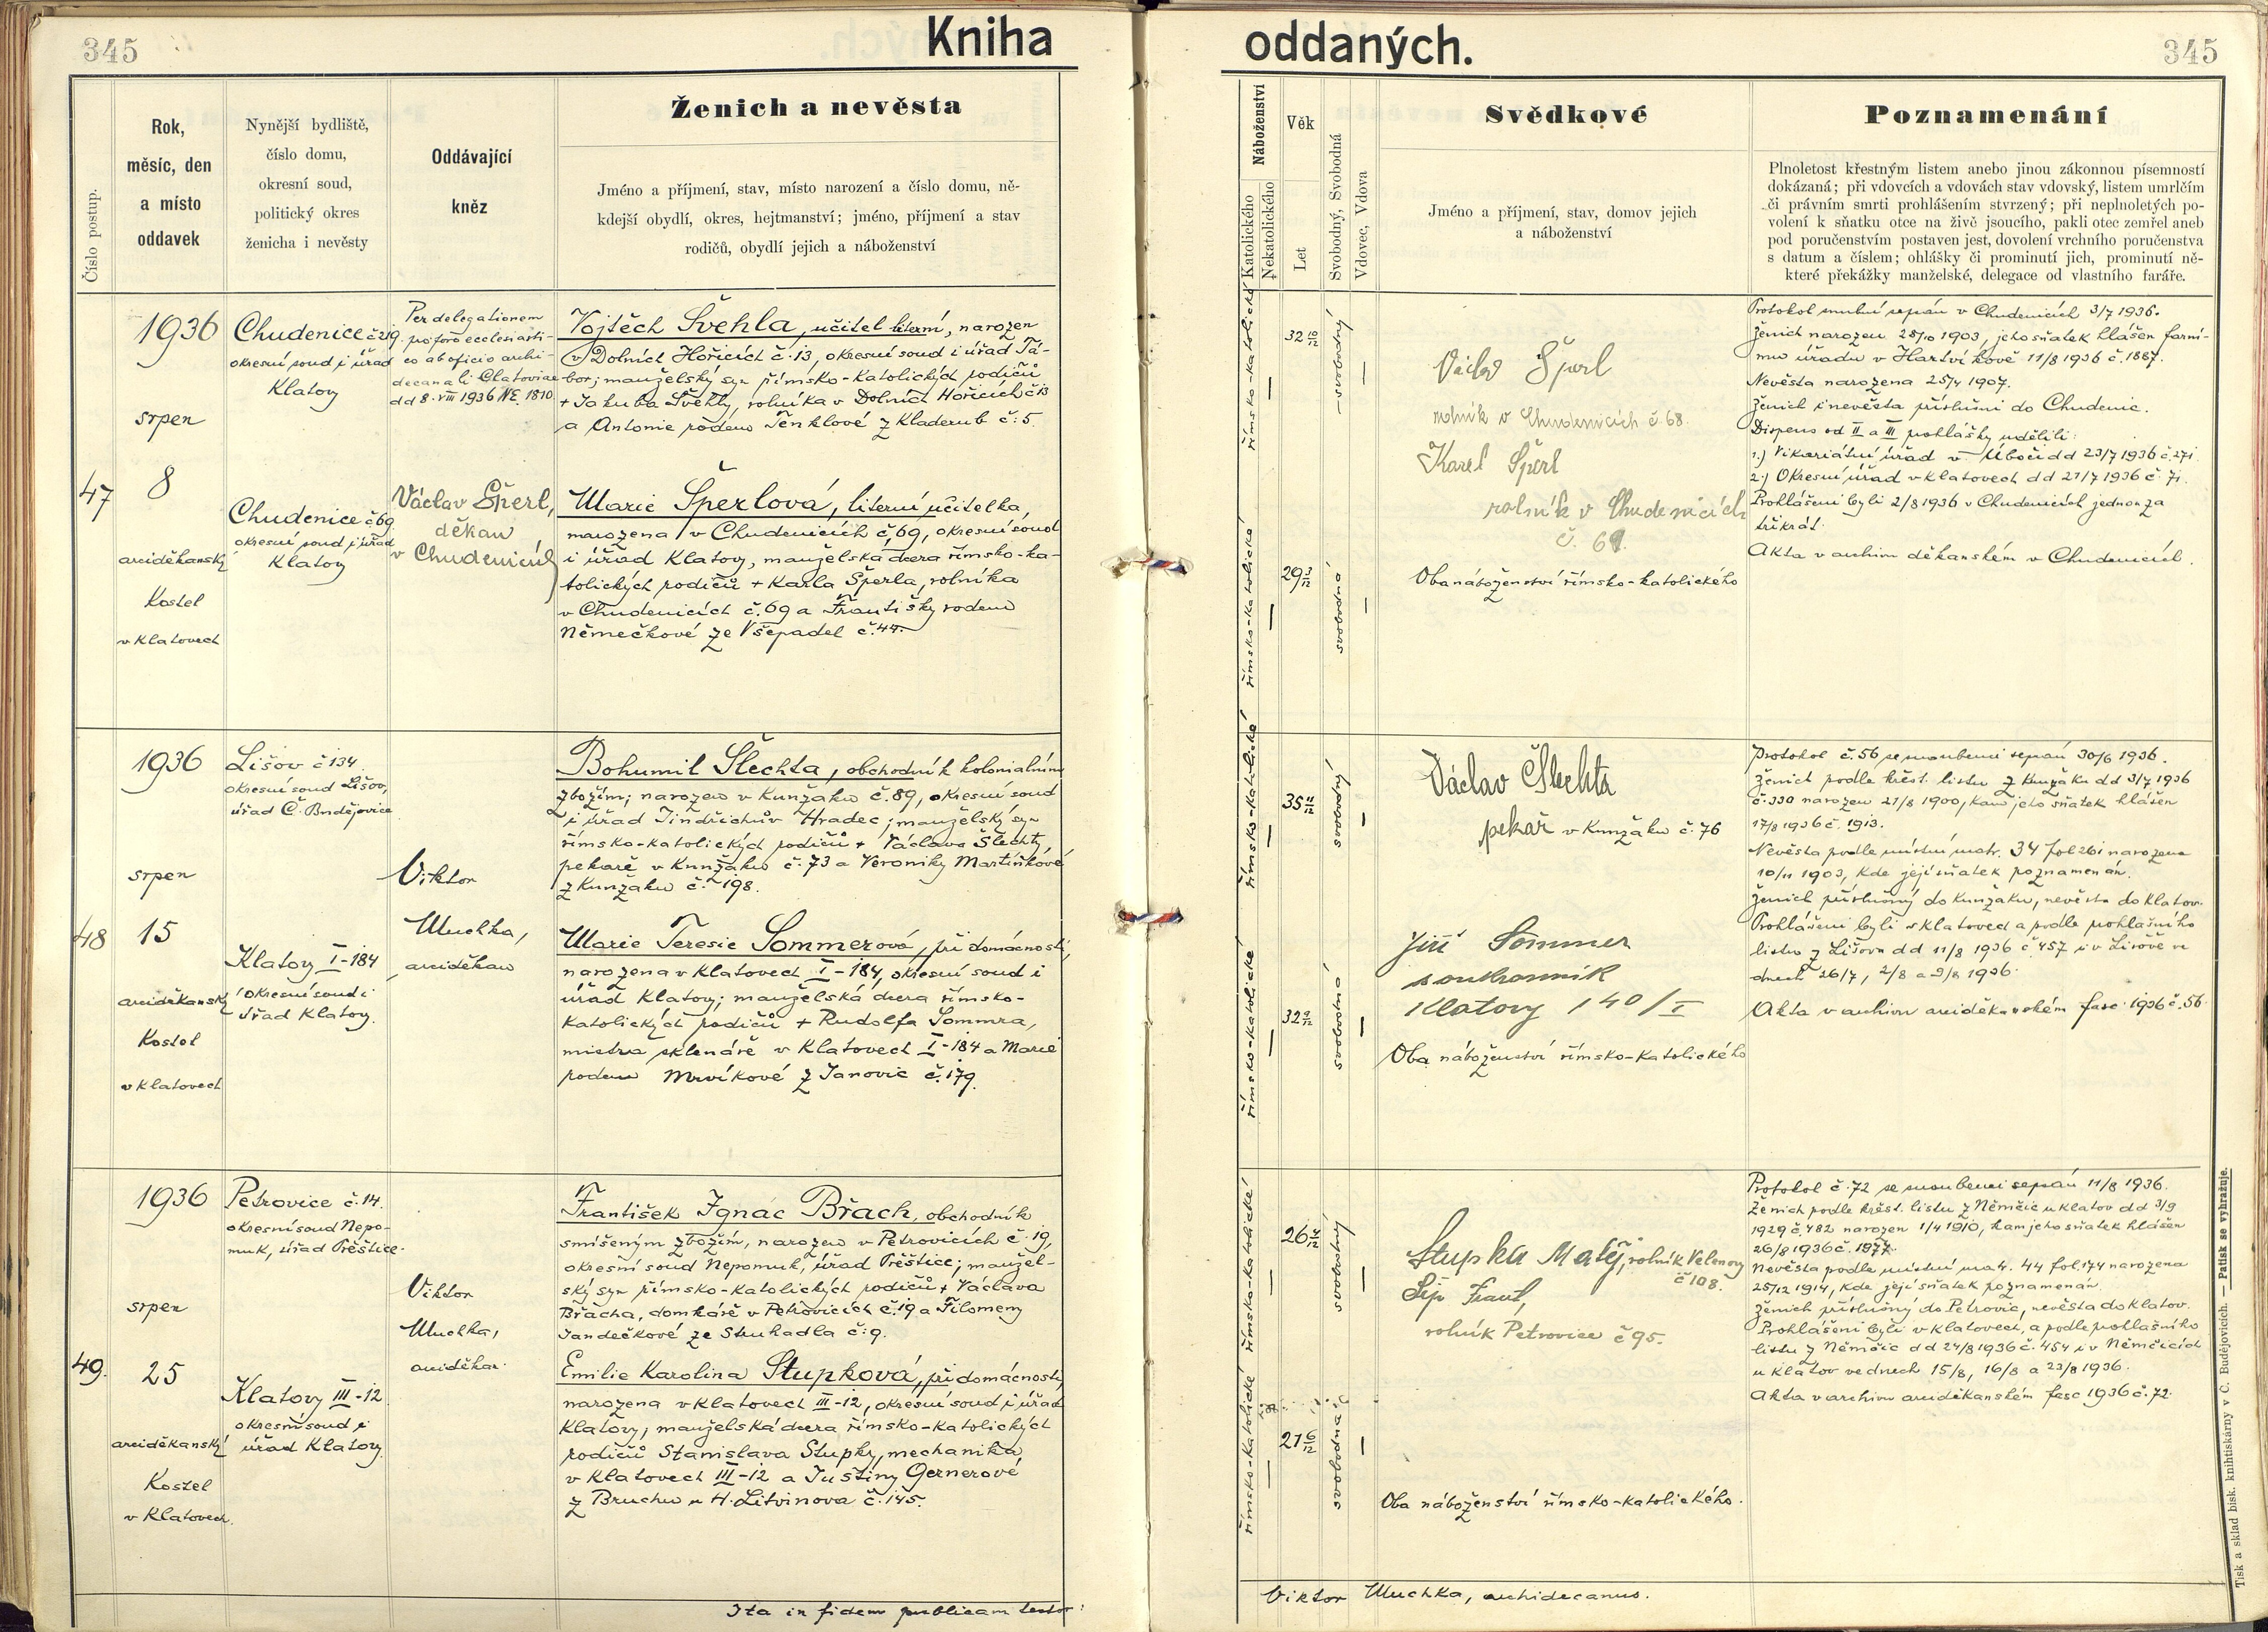 345
Kniha
oddaných.
345
Číslo postup.
Rok,
měsíc, den
a místo
oddavek
Nynější bydliště,
číslo domu,
okresní soud,
politický okres
ženicha i nevěsty
Oddávající
kněz
Ženich a nevěsta
Jméno a příjmení, stav, místo narození a číslo domu, ně-
kdejší obydlí, okres, hejtmanství; jméno, příjmení a stav
rodičů, obydlí jejich a náboženství
Náboženství
Katolického
Nekatolického
Věk
Let
Svobodný, Svobodná
Vdovec, Vdova
Svědkové
Jméno a příjmení, stav, domov jejich
a náboženství
Poznamenání
Plnoletost křestným listem anebo jinou zákonnou písemností
dokázaná; při vdovcích a vdovách stav vdovský, listem umrlčím
či právním smrti prohlášením stvrzený; při neplnoletých po-
volení k sňatku otce na živě jsoucího, pakli otec zemřel aneb
pod poručenstvím postaven jest, dovolení vrchního poručenstva
s datum a číslem; ohlášky či prominutí jich, prominutí ně-
které překážky manželské, delegace od vlastního faráře.
47
1936
srpen
8
arciděkanský
kostel
v Klatovech
Chudenice č 219
okresní soud i úřad
Klatovy
Chudenice č 69
okresní soud i úřad
Klatovy
Per delegationem
pro foro ecclesiasti-
co ab oficio archi-
decanali Glatoviae
dd 8. VIII 1936 NE. 1810
Václav Šperl,
děkan
v Chudenicích
Vojtěch Švehla, učitel literní, narozen
v Dolních Hořicích č. 13, okresní soud i úřad Tá-
bor; manželský syn římsko-katolických rodičů
+ Jakuba Švehly, rolníka v Dolních Hořicích č 13
a Antonie rodem Tenklové z Kladerub č: 5.
Marie Šperlová, literní učitelka,
narozena v Chudenicích č. 69, okresní soud
i úřad Klatovy, manželská dcera římsko-ka-
tolických rodičů + Karla Šperla, rolníka
v Chudenicích č. 69 a Františky rodem
Němečkové ze Všepadel č. 44.
římsko-katolické
32 10/12
svobodný
římsko-katolické
29 3/12
svobodná
Václav Šperl
rolník v Chudenicích č. 68.
Karel Šperl
rolník v Chudenicích
č. 69.
Oba náboženství římsko-katolického
Protokol snubní sepsán v Chudenicích 3/7 1936.
Ženich narozen 28/10 1903, jeho sňatek hlášen farní-
mu úřadu v Hartvíkově 11/8 1936 č. 1887.
Nevěsta narozena 25/4 1907.
Ženich i nevěsta příslušní do Chudenic.
Dispens od II a III prohlášky udělili:
1.) Vikariátní úřad v Úbočí dd 23/7 1936 č. 271
2.) Okresní úřad v Klatovech dd 21/7 1936 č. 71.
Prohlášeni byli 2/8 1936 v Chudenicích jednou za
třikrát.
Akta v archivu děkanském v Chudenicích.
48
1936
srpen
15
arciděkanský
kostel
v Klatovech
Lišov č 134.
okresní soud Lišov,
úřad Č. Budějovice
Klatovy I-184
okresní soud i
úřad Klatovy.
Viktor
Muchka,
arciděkan
Bohumil Šlechta, obchodník koloniálním
zbožím; narozen v Kunžaku č. 89, okresní soud
i úřad Jindřichův Hradec; manželský syn
římsko-katolických rodičů + Václava Šlechty,
pekaře v Kunžaku č. 73 a Veroniky Martínkové
z Kunžaku č. 198.
Marie Teresie Sommerová, při domácnosti,
narozena v Klatovech I-184, okresní soud i
úřad Klatovy; manželská dcera římsko-
katolických rodičů + Rudolfa Sommra,
mistra sklenáře v Klatovech I-184 a Marie
rodem Mrvíkové z Janovic č. 179.
římsko-katolické
35 11/12
svobodný
římsko-katolické
32 9/12
svobodná
Václav Šlechta
pekař v Kunžaku č. 76
Jiří Sommer
soukromník
Klatovy 140/I
Oba náboženství římsko-katolického
Protokol č. 56 se snoubenci sepsán 30/6 1936.
Ženich podle křest. listu z Kunžaku dd 3/7 1936
č. 330 narozen 21/8 1900, kam jeho sňatek hlášen
17/8 1936 č. 1913.
Nevěsta podle místní matr. 34 fol 261 narozena
10/11 1903, kde její sňatek poznamenán.
Ženich příslušný do Kunžaku, nevěsta do Klatov.
Prohlášeni byli v Klatovech a podle prohlašního
listu z Lišova dd 11/8 1936 č. 457 i v Lišově ve
dnech 26/7, 2/8 a 9/8 1936.
Akta v archivu arciděkanském fasc. 1936 č. 56
49.
1936
srpen
25
arciděkanský
kostel
v Klatovech.
Petrovice č. 14.
okresní soud Nepo-
muk, úřad Přeštice.
Klatovy III-12
okresní soud i
úřad Klatovy.
Viktor
Muchka,
arciděkan.
František Ignác Břach, obchodník
smíšeným zbožím, narozen v Petrovicích č. 19,
okresní soud Nepomuk, úřad Přeštice; manžel-
ský syn římsko-katolických rodičů + Václava
Břacha, domkáře v Petrovicích č. 19 a Filomeny
Jandečkové ze Struhadla č: 9.
Emilie Karolina Stupková, při domácnosti,
narozena v Klatovech III-12, okresní soud i úřad
Klatovy; manželská dcera římsko-katolických
rodičů Stanislava Stupky, mechanika
v Klatovech III-12 a Justiny Gernerové
z Bruchu u H. Litvínova č. 145.
římsko-katolické
svobodný
římsko-katolické
římsko-katolické
21 6/12
svobodná
Stupka Matěj, rolník Velenovy
č 108.
Šíp Frant,
rolník Petrovice č 95.
Oba náboženství římsko-katolického.
Protokol č. 72 se snoubenci sepsán 11/8 1936.
Ženich podle křest. listu z Němčic u Klatov dd 3/9
1929 č. 482 narozen 1/4 1910, kam jeho sňatek hlášen
26/8 1936 č. 1977.
Nevěsta podle místní mat. 44 fol. 174 narozena
25/12 1914, kde její sňatek poznamenán.
Ženich příslušný do Petrovic, nevěsta do Klatov.
Prohlášeni byli v Klatovech, a podle prohlašního
listu z Němčic dd 24/8 1936 č. 454 i v Němčicích
u Klatov ve dnech 15/8, 16/8 a 23/8 1936.
Akta v archivu arciděkanském fasc 1936 č. 72.
Ita in fidem publicam testor:
Viktor Muchka, archidecanus.
Tisk a sklad bisk. knihtiskárny v Č. Budějovicích. — Patisk se vyhražuje.